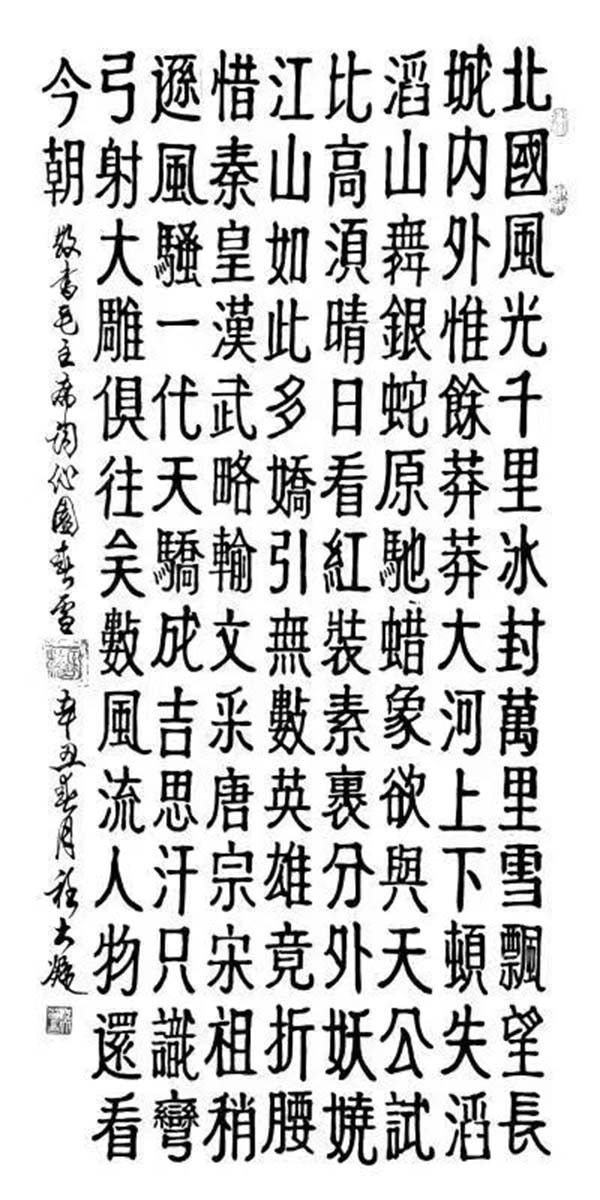 北國風光千里冰封萬里雪飄望長
城内外惟餘莽莽大河上下頓失滔
滔山舞銀蛇原馳蜡象欲與天公試
比高須晴日看紅裝素裹分外妖嬈
江山如此多嬌引無數英雄竟折腰
惜秦皇漢武略輸文采唐宗宋祖稍
遜風騷一代天驕成吉思汗只識彎
弓射大雕俱往矣數風流人物還看
今朝 敬書毛主席詞沁園春雪 辛丑春月